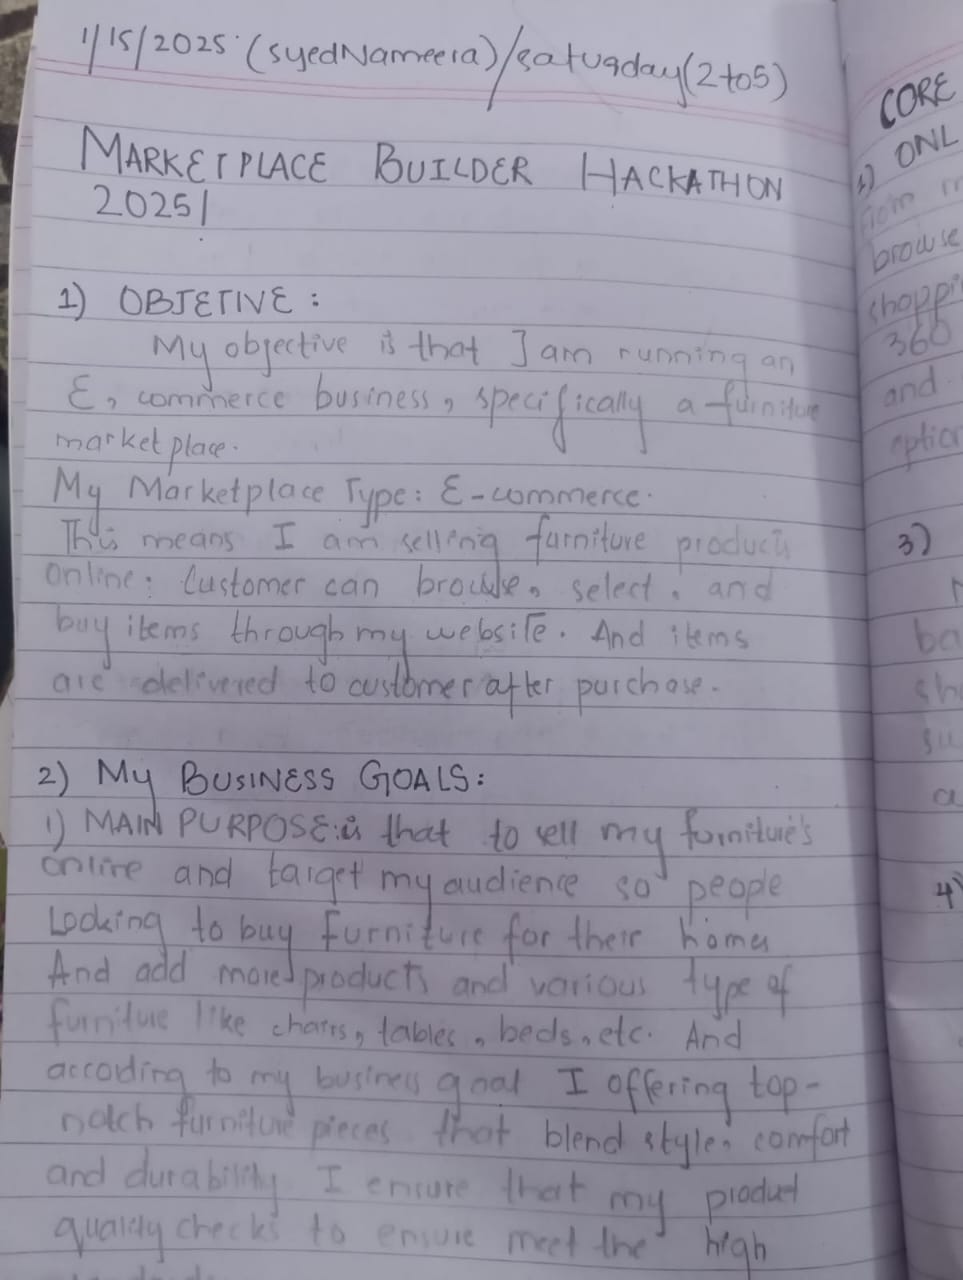 1/15/2025 (syedNameera)/saturday(2 to 5)
MARKETPLACE BUILDER HACKATHON
2025|
1) OBJETIVE :
My objective is that I am running an
E, commerce business, specifically a furniture
market place.
My Marketplace Type: E-commerce.
This means I am selling furniture products
Online: Customer can browse, select, and
buy items through my website. And items
are delivered to customer after purchase.
2) My BUSINESS GOALS:
1) MAIN PURPOSE: is that to sell my furniture's
online and target my audience so people
Looking to buy furniture for their homes
And add more products and various type of
furniture like chairs, tables, beds, etc. And
according to my business goal I offering top-
notch furniture pieces that blend style, comfort
and durability. I ensure that my product
quality checks to ensure meet the high
CORE
1) ONL
from
browse
shoppi
360
and
option
3)
ba
sh
su
a
4)